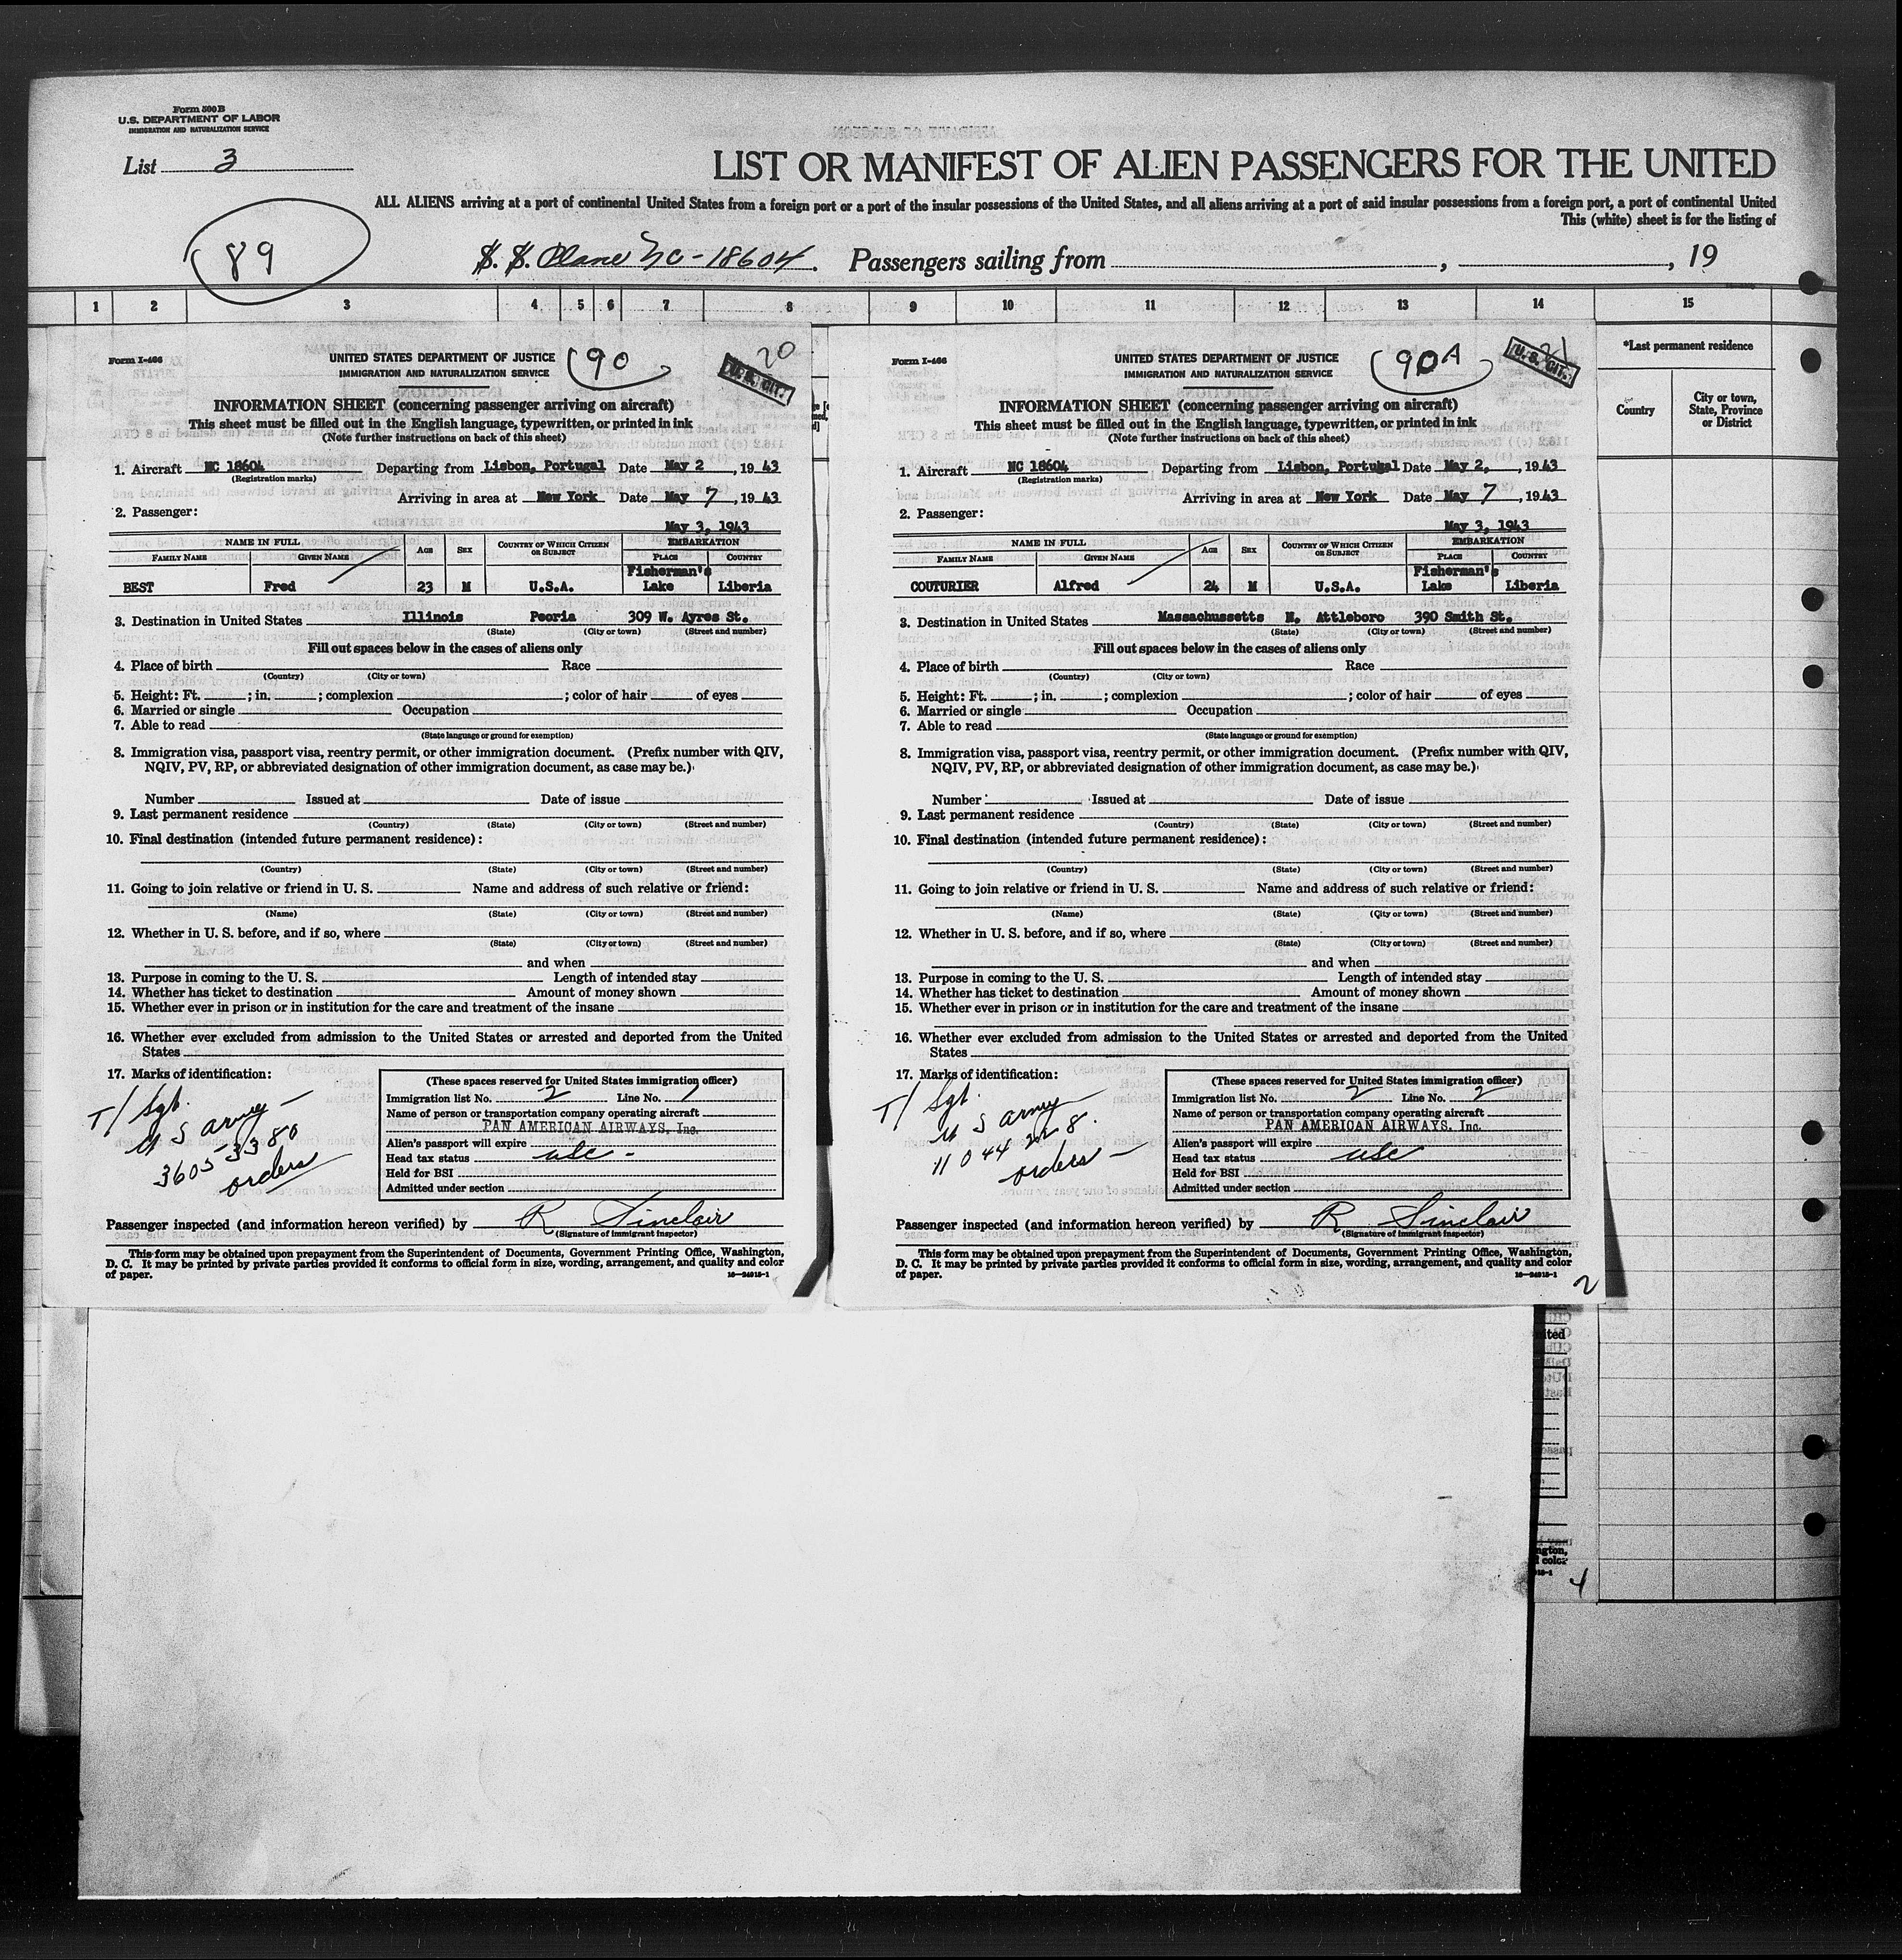 Form 500 B
U.S. DEPARTMENT OF LABOR
IMMIGRATION AND NATURALIZATION SERVICE
List 3
LIST OR MANIFEST OF ALIEN PASSENGERS FOR THE UNITED
ALL ALIENS arriving at a port of continental United States from a foreign port or a port of the insular possessions of the United States, and all aliens arriving at a port of said insular possessions from a foreign port, a port of continental United
This (white) sheet is for the listing of
89
S. S. Plane NC-18604. Passengers sailing from , , 19
1 2 3 4 5 6 7 8 9 10 11 12 13 14 15
*Last permanent residence
Country
City or town, State, Province or District
Form I-466
UNITED STATES DEPARTMENT OF JUSTICE
IMMIGRATION AND NATURALIZATION SERVICE
90
20
U. S. CIT.
INFORMATION SHEET (concerning passenger arriving on aircraft)
This sheet must be filled out in the English language, typewritten, or printed in ink
(Note further instructions on back of this sheet)
1. Aircraft NC 18604 Departing from Lisbon, Portugal Date May 2, 19 43
(Registration marks)
Arriving in area at New York Date May 7, 19 43
2. Passenger:
May 3, 1943
NAME IN FULL AGE SEX COUNTRY OF WHICH CITIZEN OR SUBJECT EMBARKATION
FAMILY NAME GIVEN NAME PLACE COUNTRY
BEST Fred 23 M U.S.A. Fisherman's Lake Liberia
3. Destination in United States Illinois Peoria 309 W. Ayres St.
(State) (City or town) (Street and number)
Fill out spaces below in the cases of aliens only
4. Place of birth Race
(Country) (City or town)
5. Height: Ft. ; in. ; complexion ; color of hair of eyes
6. Married or single Occupation
7. Able to read
(State language or ground for exemption)
8. Immigration visa, passport visa, reentry permit, or other immigration document. (Prefix number with QIV,
NQIV, PV, RP, or abbreviated designation of other immigration document, as case may be.)
Number Issued at Date of issue
9. Last permanent residence
(Country) (State) (City or town) (Street and number)
10. Final destination (intended future permanent residence):
(Country) (State) (City or town) (Street and number)
11. Going to join relative or friend in U. S. Name and address of such relative or friend:
(Name) (State) (City or town) (Street and number)
12. Whether in U. S. before, and if so, where
(State) (City or town) (Street and number)
and when
13. Purpose in coming to the U. S. Length of intended stay
14. Whether has ticket to destination Amount of money shown
15. Whether ever in prison or in institution for the care and treatment of the insane
16. Whether ever excluded from admission to the United States or arrested and deported from the United
States
17. Marks of identification:
T/Sgt.
U S Army -
36053380
orders
(These spaces reserved for United States immigration officer)
Immigration list No. 2 Line No. 1
Name of person or transportation company operating aircraft
PAN AMERICAN AIRWAYS, Inc.
Alien's passport will expire
Head tax status usc -
Held for BSI
Admitted under section
Passenger inspected (and information hereon verified) by R Sinclair
(Signature of immigrant inspector)
This form may be obtained upon prepayment from the Superintendent of Documents, Government Printing Office, Washington,
D. C. It may be printed by private parties provided it conforms to official form in size, wording, arrangement, and quality and color
of paper. 16-24915-1
Form I-466
UNITED STATES DEPARTMENT OF JUSTICE
IMMIGRATION AND NATURALIZATION SERVICE
90A
21
U. S. CIT.
INFORMATION SHEET (concerning passenger arriving on aircraft)
This sheet must be filled out in the English language, typewritten, or printed in ink
(Note further instructions on back of this sheet)
1. Aircraft NC 18604 Departing from Lisbon, Portugal Date May 2, , 19 43
(Registration marks)
Arriving in area at New York Date May 7, 19 43
2. Passenger:
May 3, 1943
NAME IN FULL AGE SEX COUNTRY OF WHICH CITIZEN OR SUBJECT EMBARKATION
FAMILY NAME GIVEN NAME PLACE COUNTRY
COUTURIER Alfred 24 M U.S.A. Fisherman's Lake Liberia
3. Destination in United States Massachussetts N. Attleboro 390 Smith St.
(State) (City or town) (Street and number)
Fill out spaces below in the cases of aliens only
4. Place of birth Race
(Country) (City or town)
5. Height: Ft. ; in. ; complexion ; color of hair of eyes
6. Married or single Occupation
7. Able to read
(State language or ground for exemption)
8. Immigration visa, passport visa, reentry permit, or other immigration document. (Prefix number with QIV,
NQIV, PV, RP, or abbreviated designation of other immigration document, as case may be.)
Number Issued at Date of issue
9. Last permanent residence
(Country) (State) (City or town) (Street and number)
10. Final destination (intended future permanent residence):
(Country) (State) (City or town) (Street and number)
11. Going to join relative or friend in U. S. Name and address of such relative or friend:
(Name) (State) (City or town) (Street and number)
12. Whether in U. S. before, and if so, where
(State) (City or town) (Street and number)
and when
13. Purpose in coming to the U. S. Length of intended stay
14. Whether has ticket to destination Amount of money shown
15. Whether ever in prison or in institution for the care and treatment of the insane
16. Whether ever excluded from admission to the United States or arrested and deported from the United
States
17. Marks of identification:
T/Sgt.
U S Army
11044228.
orders -
(These spaces reserved for United States immigration officer)
Immigration list No. 2 Line No. 2
Name of person or transportation company operating aircraft
PAN AMERICAN AIRWAYS, Inc.
Alien's passport will expire
Head tax status usc
Held for BSI
Admitted under section
Passenger inspected (and information hereon verified) by R Sinclair
(Signature of immigrant inspector)
This form may be obtained upon prepayment from the Superintendent of Documents, Government Printing Office, Washington,
D. C. It may be printed by private parties provided it conforms to official form in size, wording, arrangement, and quality and color
of paper. 16-24915-1
2
4